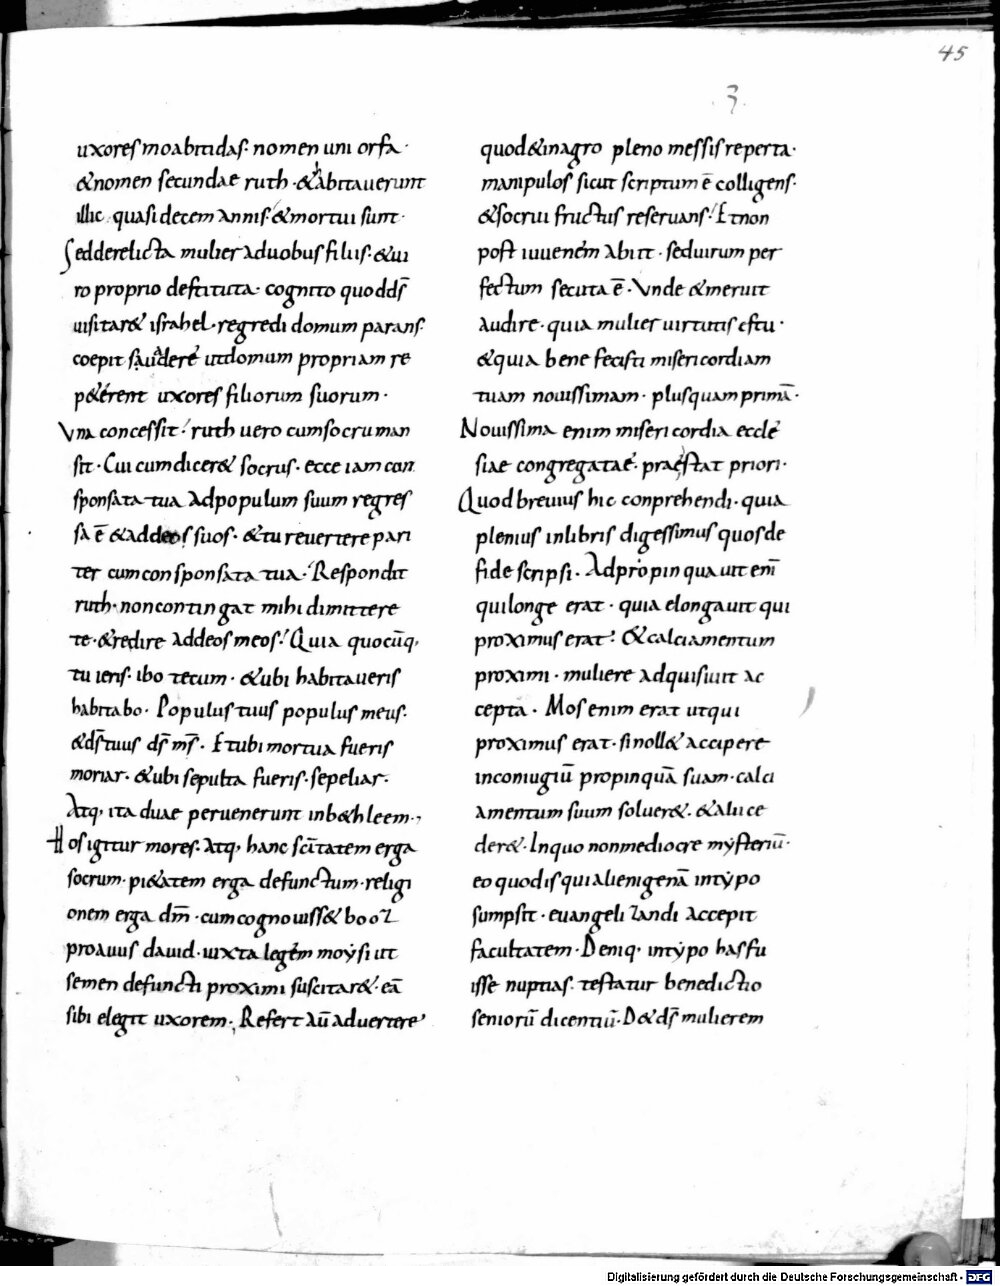 45
3
uxores moabitidas· nomen uni orfa·
& nomen secundae ruth· & habitauerunt
illic quasi decem annis· & mortui sunt·
Sed derelicta mulier a duobus filiis· & ui
ro proprio destituta· cognito quod d̄s
uisitar& israhel· regredi domum parans·
coepit suadere ut domum propriam re
p&erent uxores filiorum suorum·
Vna concessit· ruth uero cum socru man
sit· Cui cum dicer& socrus· ecce iam con
sponsata tua ad populum suum regres
sa ē & ad deos suos· & tu reuertere pari
ter cum consponsata tua· Respondit
ruth· non contingat mihi dimittere
te· & redire ad deos meos! Quia quocūq;
tu ieris· ibo tecum· & ubi habitaueris
habitabo· Populus tuus populus meus·
& d̄s tuus d̄s m̄s· Et ubi mortua fueris
moriar· & ubi sepulta fueris· sepeliar·
Atq; ita duae peruenerunt in b&hleem·,
Hos igitur mores· atq; hanc sc̄itatem erga
socrum· pi&atem erga defunctum· religi
onem erga dm̄· cum cognouiss& booz
proauus dauid· iuxta legem moysi ut
semen defuncti proximi suscitar&· eā
sibi elegit uxorem·, Refert aū aduertere
quod & in agro pleno messis reperta·
manipulos sicut scriptum ē colligens·
& socrui fructus reseruans! Et non
post iuuenem abiit· sed uirum per
fectum secuta ē· Vnde & meruit
audire· quia mulier uirtutis es tu·
& quia bene fecisti misericordiam
tuam nouissimam· plusquam primā·
Nouissima enim misericordia eccle
siae congregatae· praestat priori·
Quod breuius hic conprehendi· quia
plenius in libris digessimus quos de
fide scripsi· Adpropinquauit eni̅
qui longe erat· quia elongauit qui
proximus erat! & calciamentum
proximi· muliere adquisiuit ac
cepta· Mos enim erat ut qui
proximus erat· si noll& accipere
in coniugiū propinquā suam· calci
amentum suum soluer&· & alii ce
der&· In quo non mediocre mysteriū·
eo quod is qui alienigenā in typo
sumpsit· euangelizandi accepit
facultatem· Deniq; in typo has fu
isse nuptias· testatur benedictio
seniorū dicentiū· D& d̄s mulierem
Digitalisierung gefördert durch die Deutsche Forschungsgemeinschaft - DFG